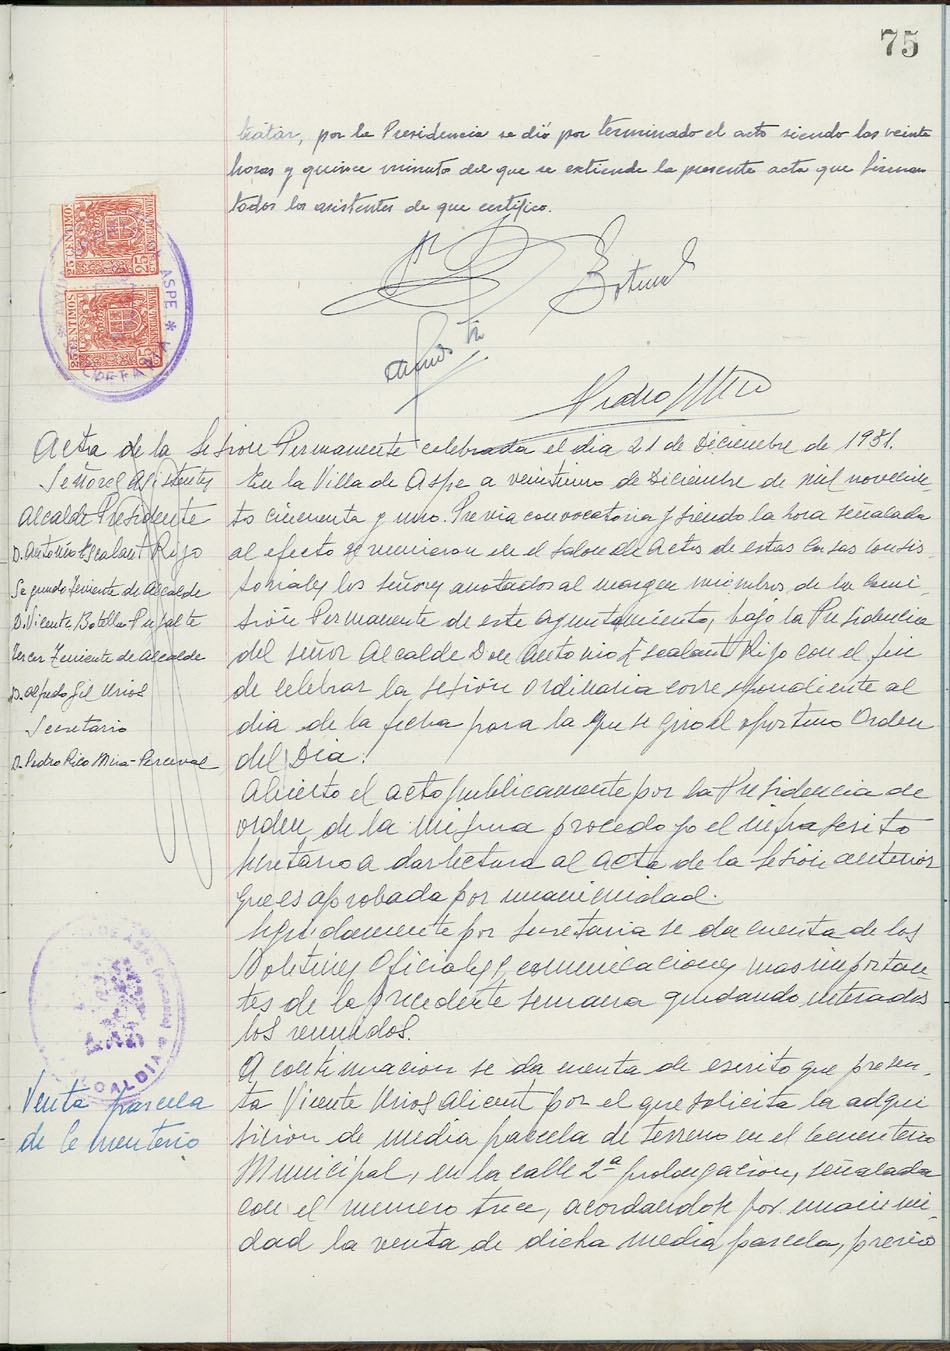 75
tratar, por la Presidencia se dió por terminado el acto siendo las veinte
horas y quince minuto del que se extiende la presente acta que firman
todos los asistentes de que certifico.
25 CENTIMOS 25
25 CENTIMOS 25
ASPE
Botella
Pedro
Acta de la Sesion Permanente celebrada el dia 21 de Diciembre de 1951.
Señores asistentes
Alcalde Presidente
D. Antonio Escalant Rijo
Segundo Teniente de Alcalde
D. Vicente Botella Pujalte
Tercer Teniente de Alcalde
D. Alfredo Gil Urios
Secretario
D. Pedro Rico Mira-Perceval
En la Villa de Aspe a veintiuno de Diciembre de mil novecien-
to cincuenta y uno. Previa convocatoria y siendo la hora señalada
al efecto se reunieron en el salon de Actos de estas Casas Consis-
toriales los señores anotados al margen miembros de la Comi-
sión Permanente de este Ayuntamiento, bajo la Presidencia
del señor Alcalde Don Antonio Escalant Rijo con el fin
de celebrar la sesion ordinaria correspondiente al
dia de la fecha para la que se giro el oportuno Orden
del Dia.
Abierto el acto publicamente por la Presidencia de
orden de la misma procedo yo el infrascrito
secretario a dar lectura al acta de la sesion anterior
que es aprobada por unanimidad.
Seguidamente por Secretaria se da cuenta de los
Boletines Oficiales y comunicaciones mas importan-
tes de la precedente semana quedando enterados
los reunidos.
ALCALDIA
Venta parcela
de Cementerio
A continuacion se da cuenta de escrito que presen-
ta Vicente Urios Alicant por el que solicita la adqui
sicion de media parcela de terreno en el Cementerio
Municipal, en la calle 2ª prolongacion, señalada
con el numero trece, acordandose por unanimi-
dad la venta de dicha media parcela, previo